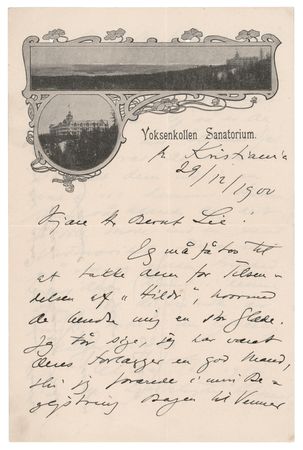 Voksenkollen Sanatorium.
pr Kristiania
29/12/1900
Kjære Hr Bernt Lie!
Jeg må få lov til
at takke dem for Tilsen-
delsen af "Hildr", hvormed
de beredte mig en stor Glæde.
Jeg tør sige, jeg har været
deres Forlægger en god Mand,
thi jeg forærede i min Be-
gejstring Bogen til Venner